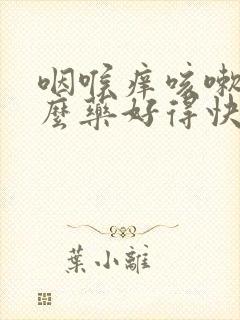 咽喉痒咳嗽
麼藥好得快
葉小離